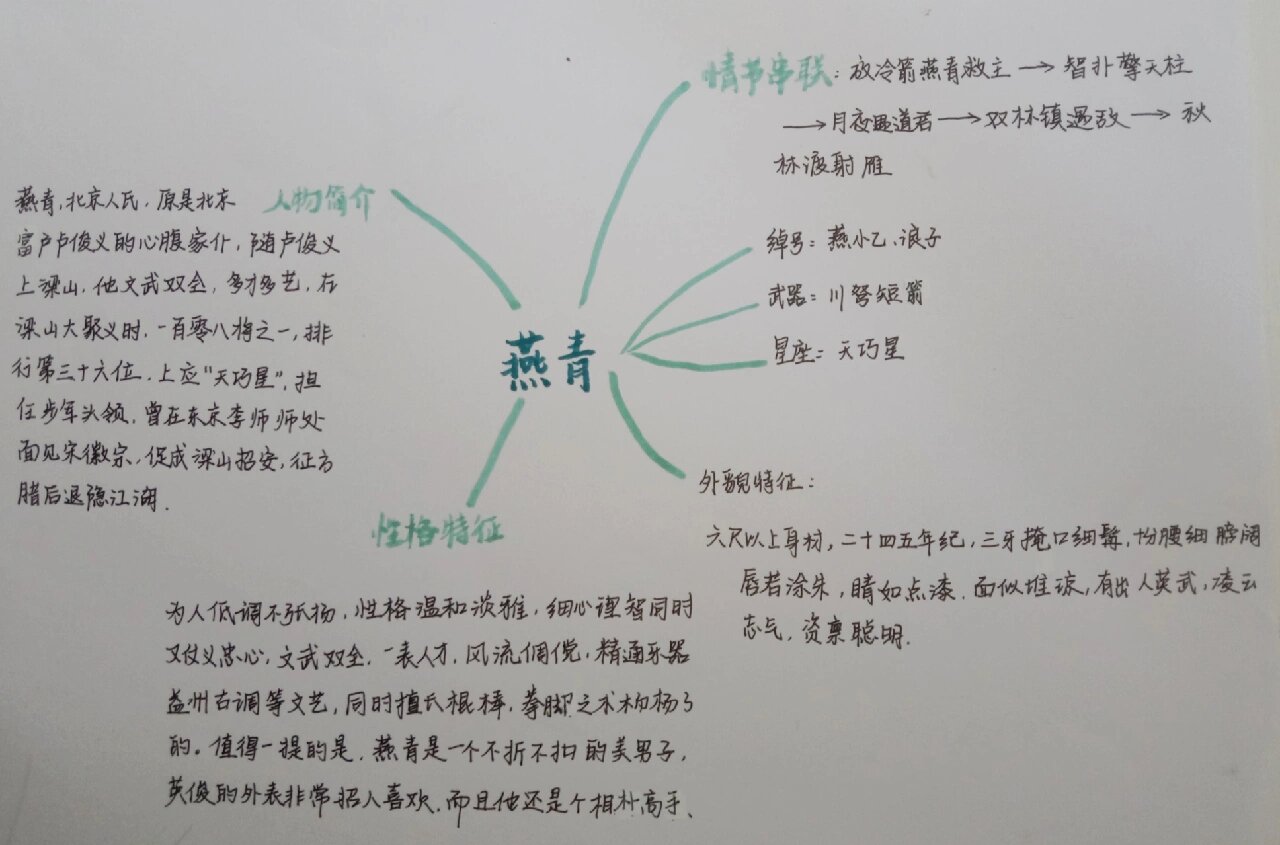 燕青
情节串联：放冷箭燕青救主→智扑擎天柱
→月夜遇道君→双林镇遇故→秋
林渡射雁
人物简介
燕青，北京人氏，原是北京
富户卢俊义的心腹家仆，随卢俊义
上梁山，他文武双全，多才多艺，在
梁山大聚义时，一百零八将之一，排
行第三十六位，上应“天巧星”，担
任步军头领，曾在东京李师师处
面见宋徽宗，促成梁山招安，征方
腊后退隐江湖．
绰号：燕小乙、浪子
武器：川弩短箭
星座：天巧星
外貌特征：
六尺以上身材，二十四五年纪，三牙掩口细髯，十分腰细膀阔
唇若涂朱，睛如点漆．面似堆琼，有出人英武，凌云
志气，资禀聪明．
性格特征
为人低调不张扬，性格温和淡雅，细心理智同时
又仗义忠心，文武双全，一表人才，风流倜傥，精通乐器
益州古调等文艺，同时擅长棍棒，拳脚之术
的。值得一提的是，燕青是一个不折不扣的美男子，
英俊的外表非常招人喜欢，而且他还是个相扑高手、